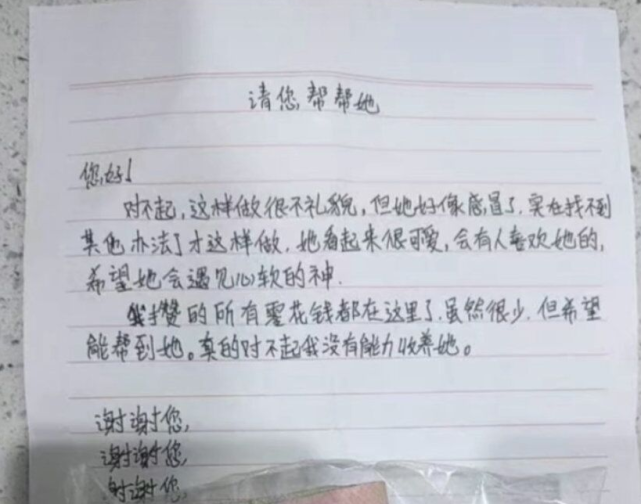 请您帮帮她
您好!
对不起,这样做很不礼貌,但她好像感冒了,实在找不到
其他办法了才这样做.她看起来很可爱,会有人喜欢她的,
希望她会遇见心软的神.
我攒的所有零花钱都在这里了.虽然很少.但希望
能帮到她。真的对不起我没有能力收养她。
谢谢您,
谢谢您,
谢谢您,